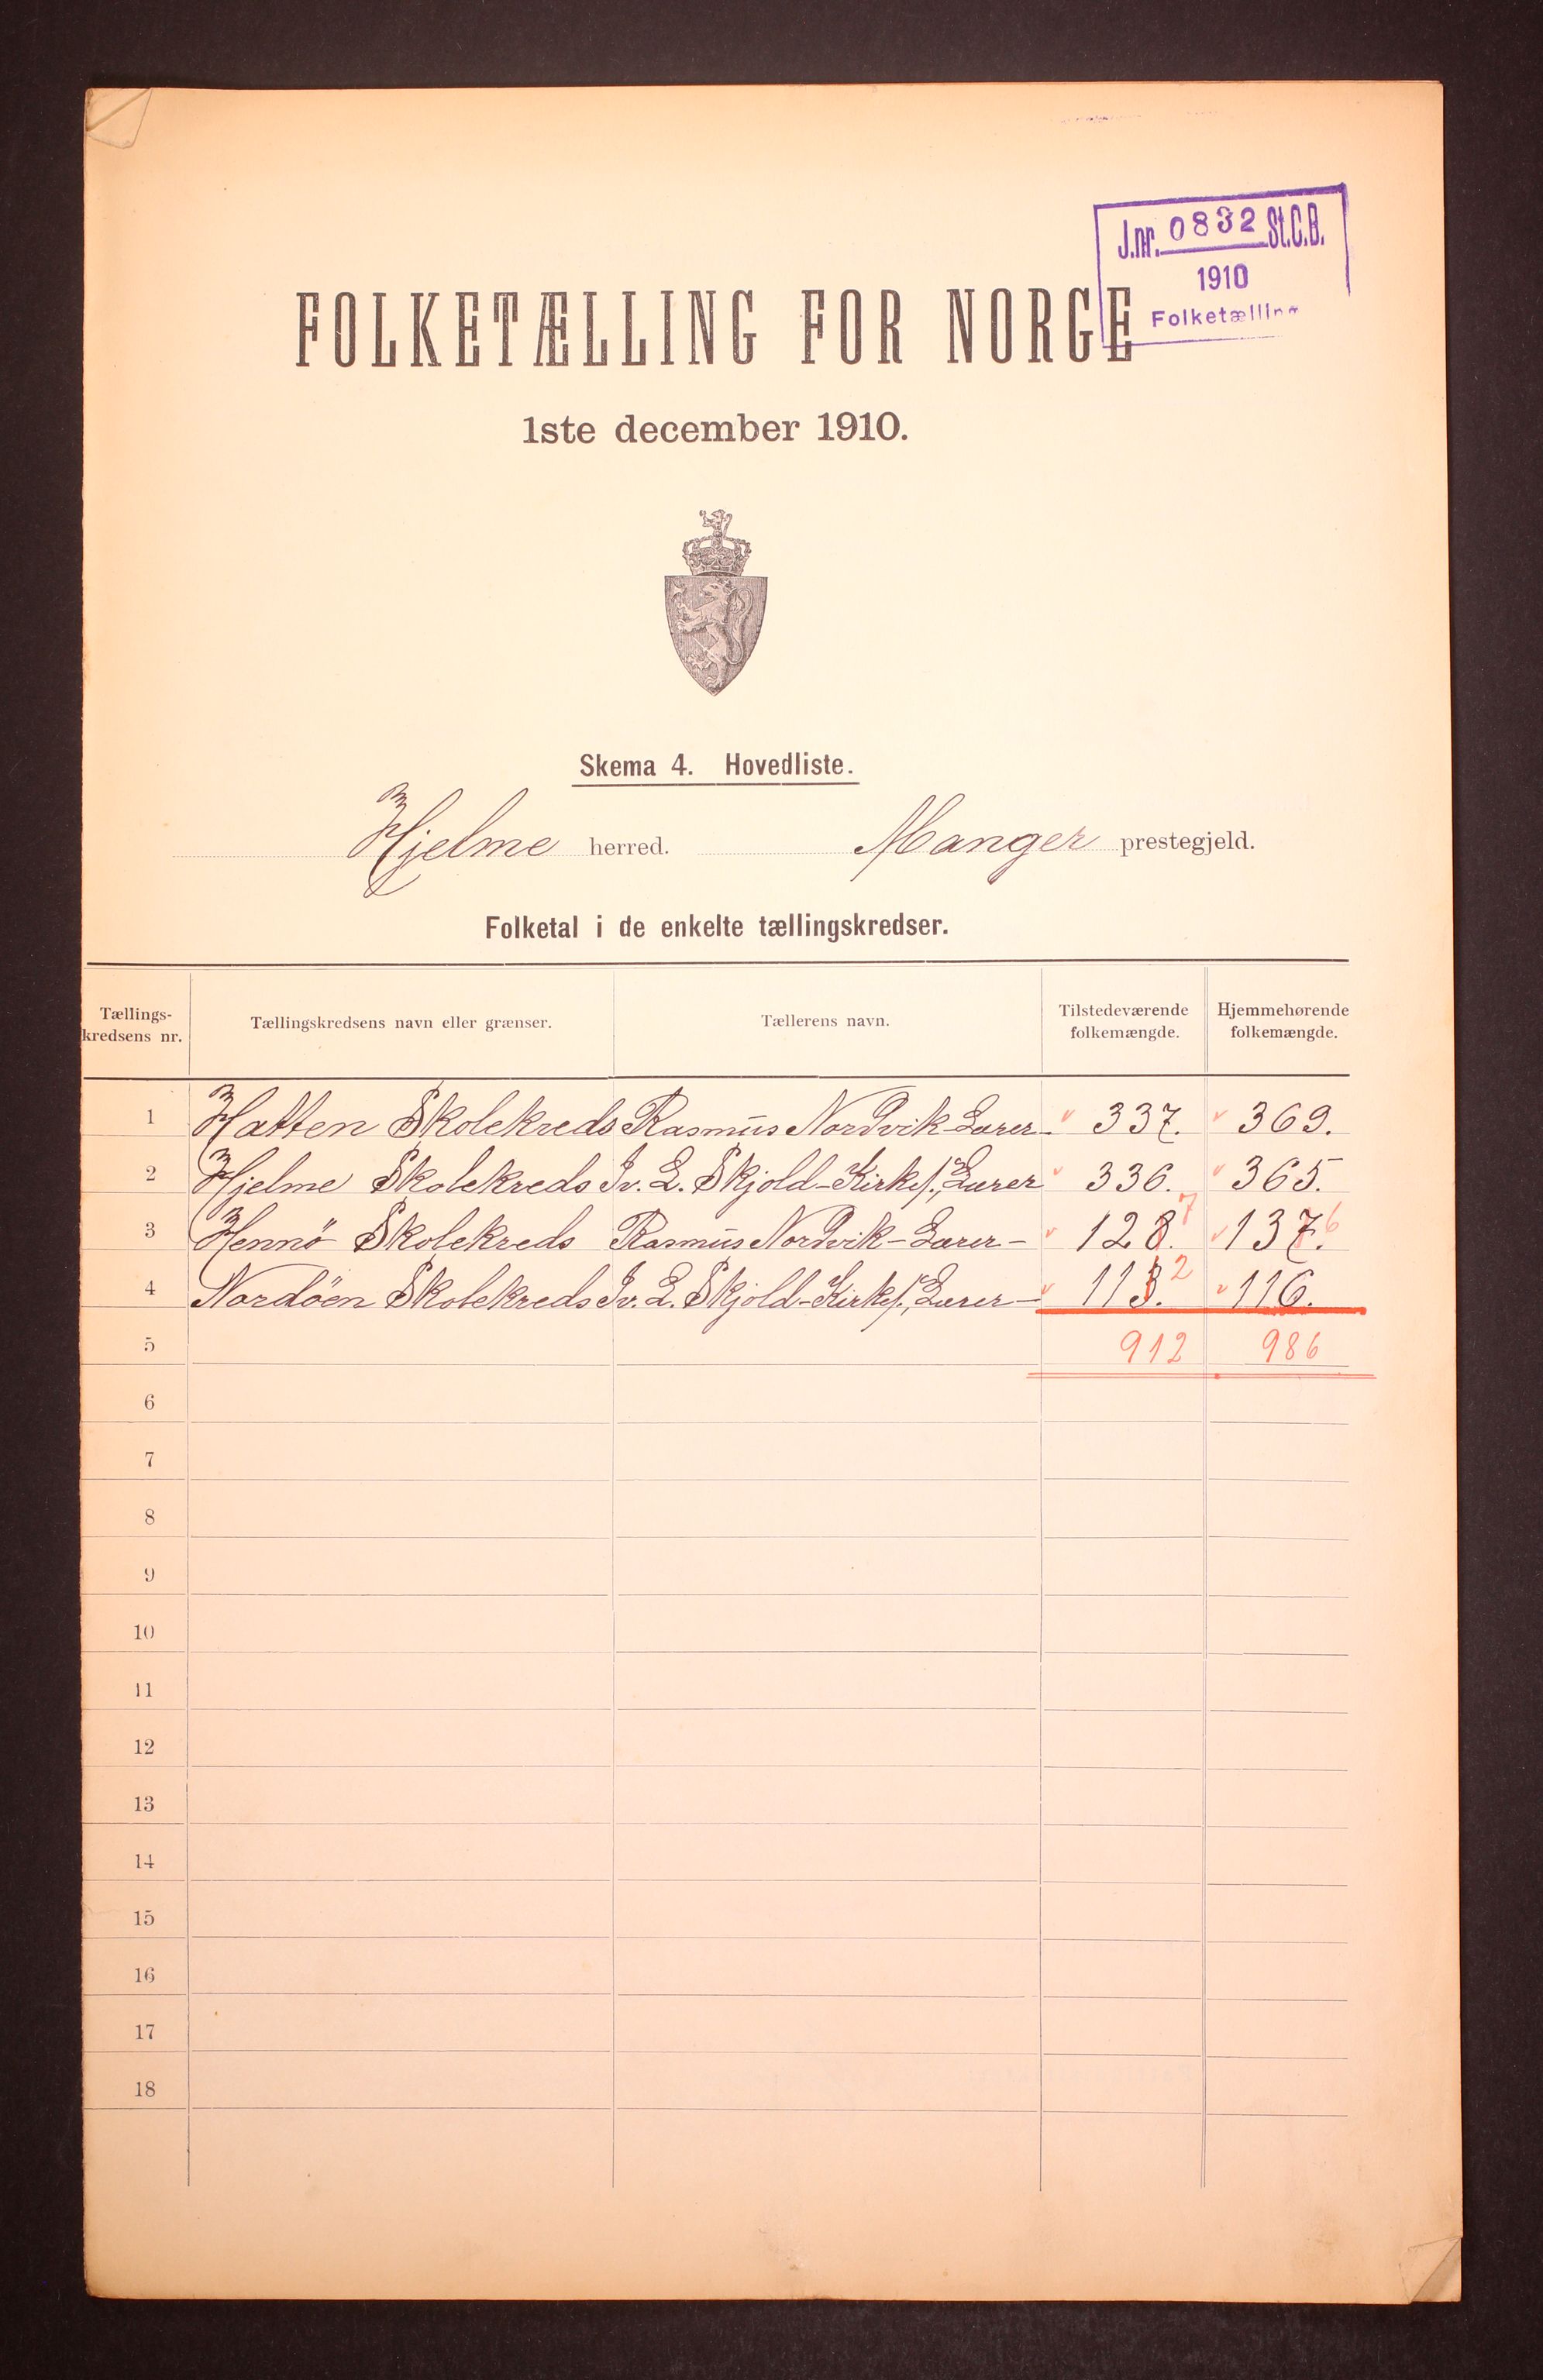 J.nr. 0832 St.C.B.
1910
Folketælling
FOLKETÆLLING FOR NORGE
1ste december 1910.
Skema 4. Hovedliste.
Hjelme herred. Manger prestegjeld.
Folketal i de enkelte tællingskredser.
Tællings-
kredsens nr.
Tællingskredsens navn eller grænser.
Tællerens navn.
Tilstedeværende
folkemængde.
Hjemmehørende
folkemængde.
1 Hatten Skolekreds Rasmus Nordvik Lærer- v 337. v 369.
2 Hjelme Skolekreds Iv. L. Skjold-Kirkes., Lærer v 336. v 365.
3 Hennö Skolekreds Rasmus Nordvik-Lærer- v 128. 7 v 137. 6
4 Nordöen Skolekreds Iv. L. Skjold-Kirkes., Lærer- v 113. 2 v 116.
5 912 986
6
7
8
9
10
11
12
13
14
15
16
17
18